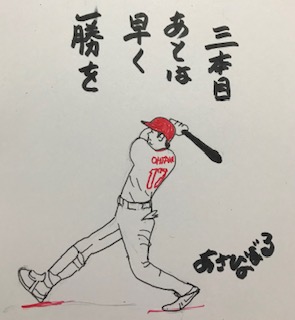 三本目
あとは
早く
一勝を
OHTANI
17
あさひなぼる